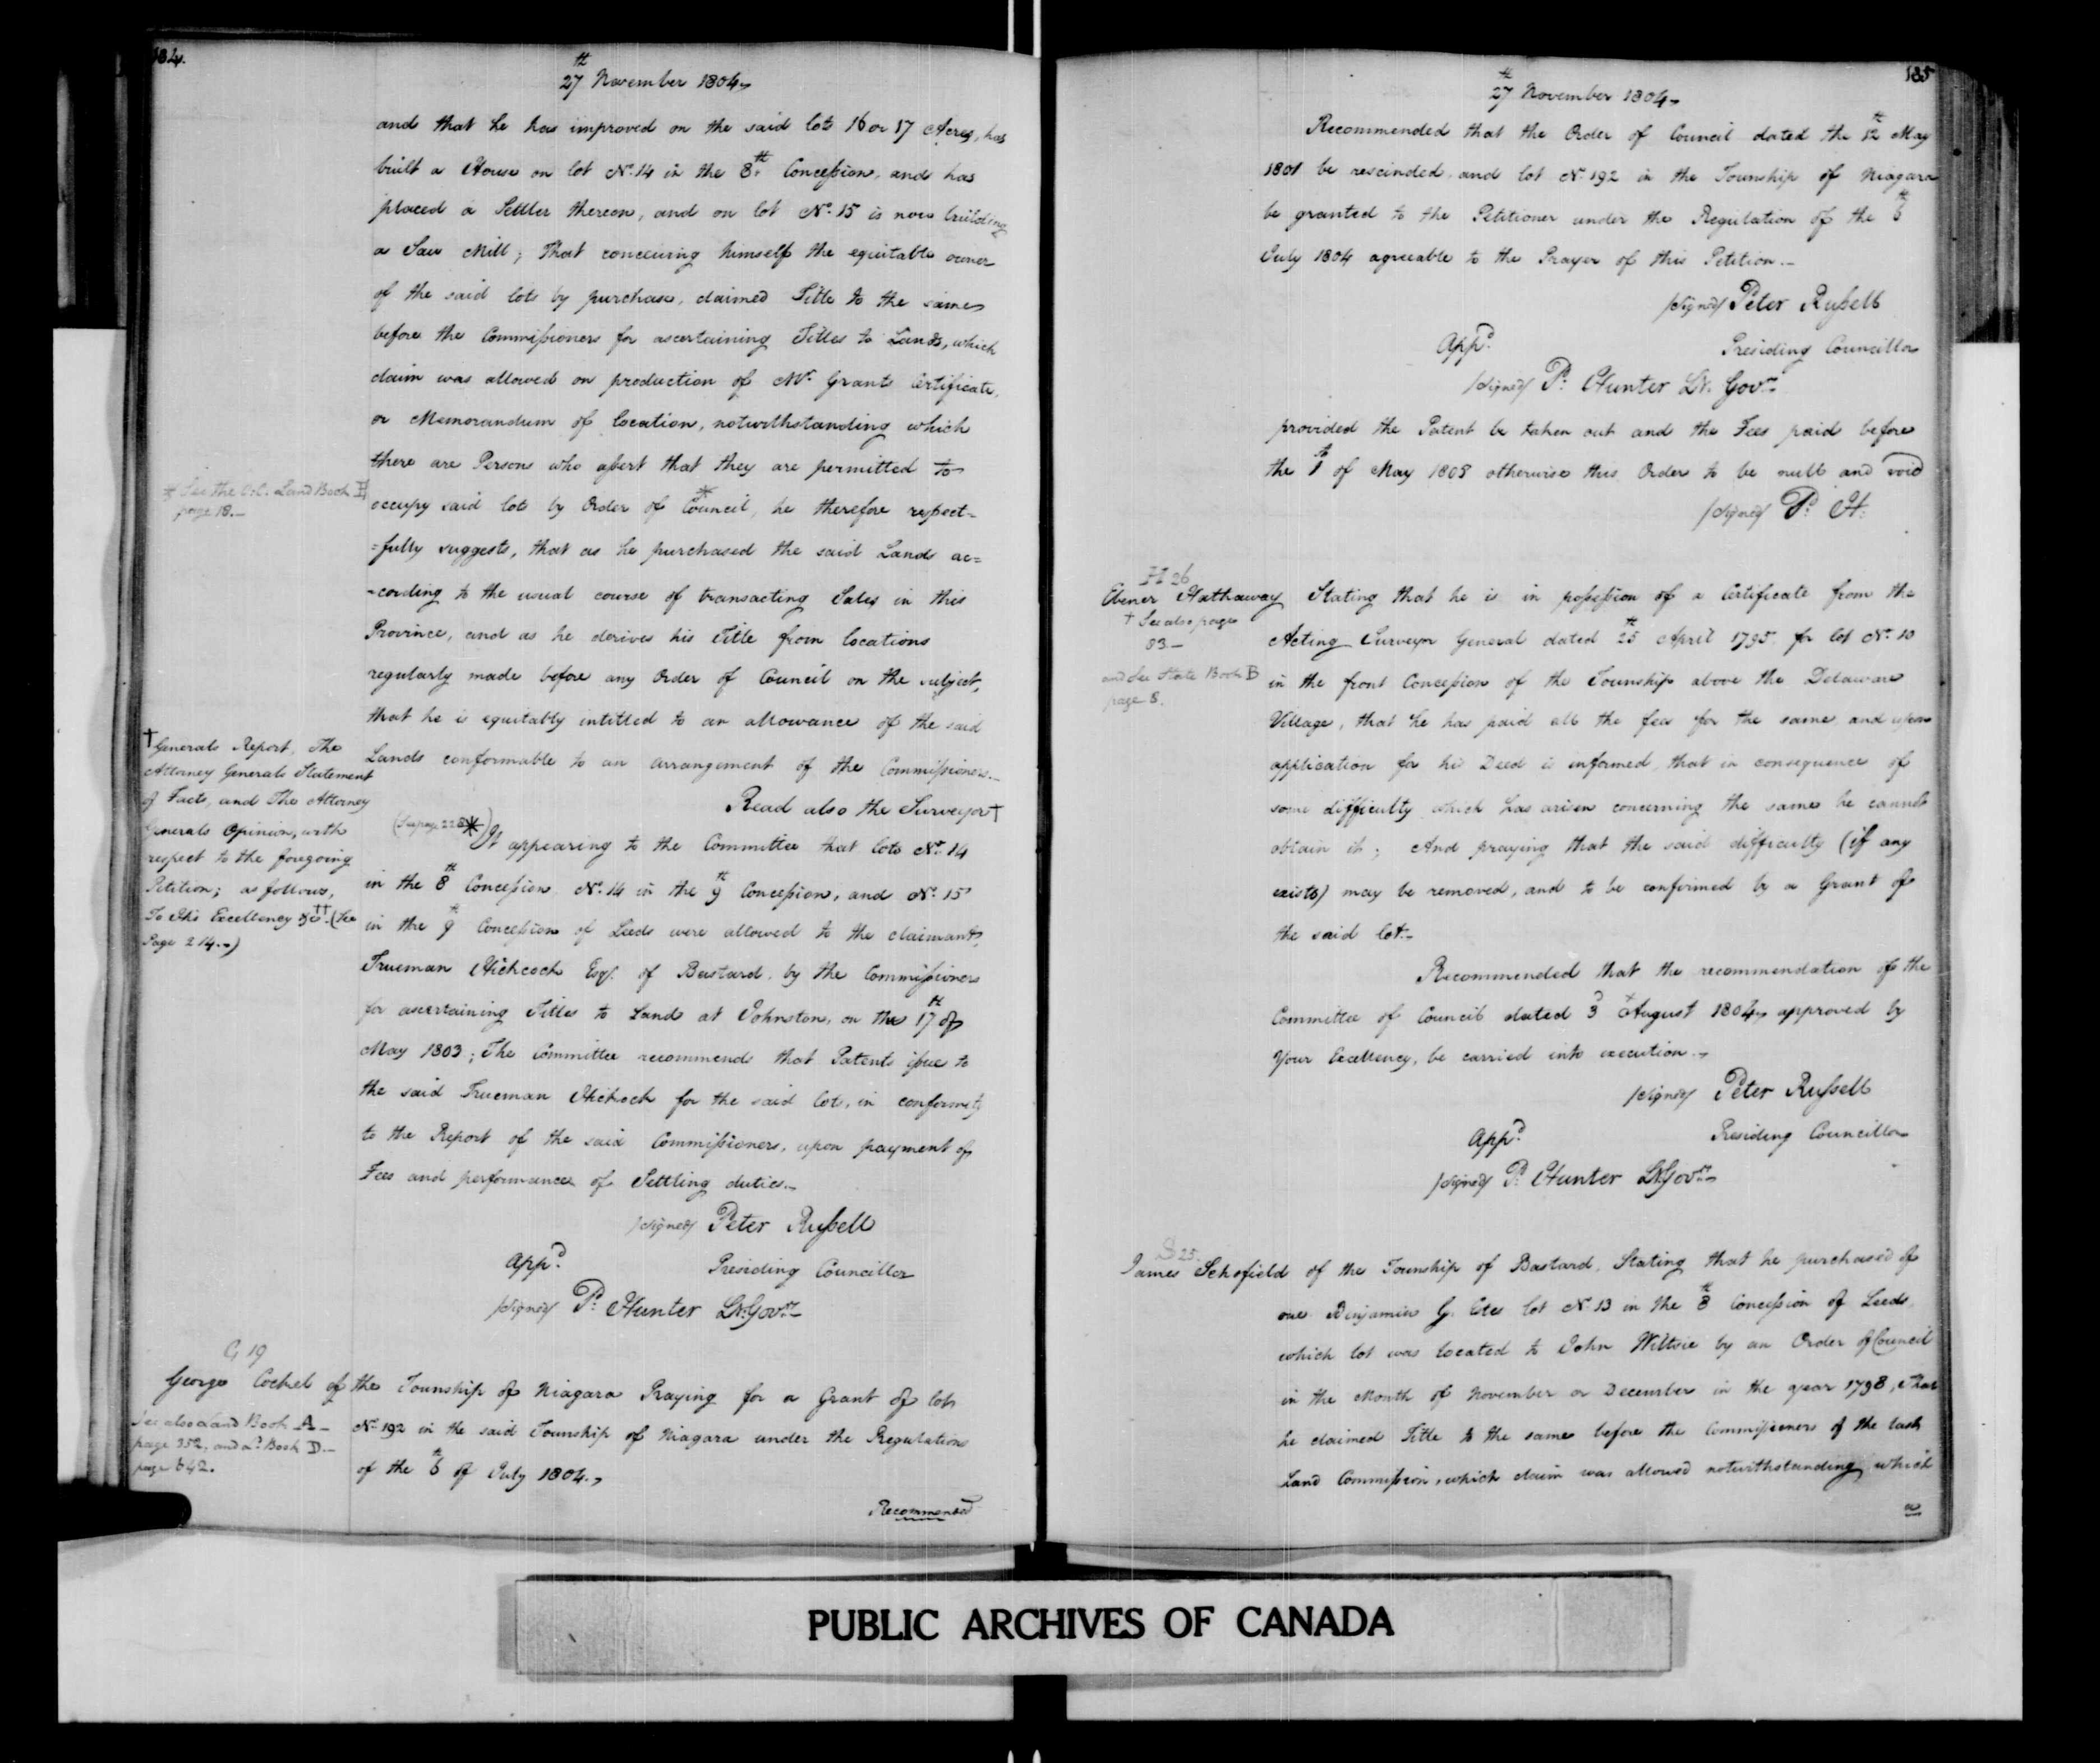 184.
27th November 1804,
and that he has improved on the said lots 16 or 17 Acres, has
built a House on lot No. 14 in the 8th Concession, and has
placed a Settler thereon, and on lot No. 15 is now building
a Saw Mill; That conceiving himself the equitable owner
of the said lots by purchase, claimed Title to the same
before the Commissioners for ascertaining Titles to Lands, which
claim was allowed on production of Mr. Grants Certificate,
or Memorandum of location, notwithstanding which
there are Persons who assert that they are permitted to
* See the O.C. Land Book
page 18.—
occupy said lots by Order of Council,* he therefore respect=
=fully suggests, that as he purchased the said Lands ac=
=cording to the usual course of transacting Sales in this
Province, and as he derives his Title from locations
regularly made before any Order of Council on the subject,
that he is equitably intitled to an allowance of the said
Lands conformable to an arrangement of the Commissioners.—
Read also the Surveyor†
†Generals Report, The
Attorney Generals Statement
of Facts, and The Attorney
Generals Opinion, with
respect to the foregoing
Petition; as follows,
To His Excellency &c††. (See
Page 214.)
(See page 218*) It appearing to the Committee that lots No. 14
in the 8th Concession No. 14 in the 9th Concession, and No. 15
in the 9th Concession of Leeds were allowed to the claimant,
Trueman Hickcock Esqr. of Bastard, by the Commissioners
for ascertaining Titles to Land at Johnston, on the 17th of
May 1803; The Committee recommends that Patents issue to
the said Trueman Hickcock for the said lots, in conformity
to the Report of the said Commissioners, upon payment of
Fees and performance of Settling duties.—
/signed/ Peter Russell
Appd. Presiding Councillor
/signed/ P. Hunter Lt. Govr.—
G 19
George Cockel of the Township of Niagara Praying for a Grant of lot
No. 192 in the said Township of Niagara under the Regulations
of the 6th of July 1804.,
See also Land Book A—
page 352, and do. Book D.—
page 642.
Recommended
185
27th November 1804,
Recommended that the Order of Council dated the 12th May
1801 be rescinded, and lot No. 192 in the Township of Niagara
be granted to the Petitioner under the Regulation of the 6th
July 1804 agreeable to the Prayer of this Petition.—
/signed/ Peter Russell
Appd. Presiding Councillor
/signed/ P. Hunter Lt. Govr.—
provided the Patent be taken out and the Fees paid before
the 1st of May 1805 otherwise this Order to be null and void
/signed/ P. H.
H 26
Ebener Hathaway Stating that he is in possession of a Certificate from the
† See also page
83.—
and See State Book B
page 8.
Acting Surveyor General dated 25th April 1795 for lot No. 10
in the front Concession of the Township above the Delaware
Village, that he has paid all the fees for the same and upon
application for his Deed is informed, that in consequence of
some difficulty which has arisen concerning the same he cannot
obtain it; And praying that the said difficulty (if any
exists) may be removed, and to be confirmed by a Grant of
the said lot.—
Recommended that the recommendation of the
Committee of Council dated 3d † August 1804, approved by
Your Excellency, be carried into execution.,
/signed/ Peter Russell
Appd. Presiding Councillor
/signed/ P. Hunter Lt. Govr.—
S 25.
James Schofield of the Township of Bastard, Stating that he purchased of
one Benjamin G. lot No. 13 in the 8th Concession of Leeds,
which lot was located to John Wiltsie by an Order of Council
in the Month of November or December in the year 1798, that
he claimed Title to the same before the Commissioners of the last
Land Commission, which claim was allowed notwithstanding which
a
PUBLIC ARCHIVES OF CANADA